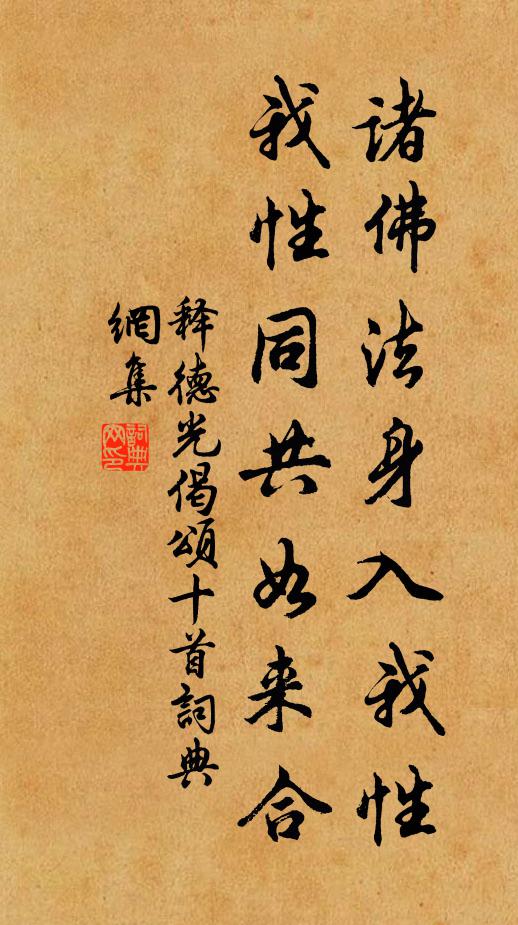 诸佛法身入我性
我性同共如来合
释德光偈颂十首詞典
網集
詞典
网印